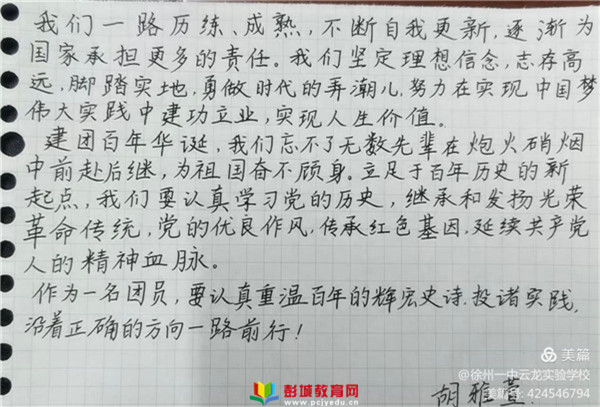 我们一路历练、成熟,不断自我更新,逐渐为
国家承担更多的责任。我们坚定理想信念,志存高
远,脚踏实地,勇做时代的弄潮儿,努力在实现中国梦
伟大实践中建功立业,实现人生价值。
建团百年华诞,我们忘不了无数先辈在炮火硝烟
中前赴后继,为祖国奋不顾身。立足于百年历史的新
起点,我们要认真学习党的历史,继承和发扬光荣
革命传统,党的优良作风,传承红色基因,延续共产党
人的精神血脉。
作为一名团员,要认真重温百年的辉宏史诗.投诸实践,
沿着正确的方向一路前行!
胡雅萱.
美篇
@徐州一中云龙实验学校
美篇号:424546794
彭城教育网
www.pcjyedu.cn